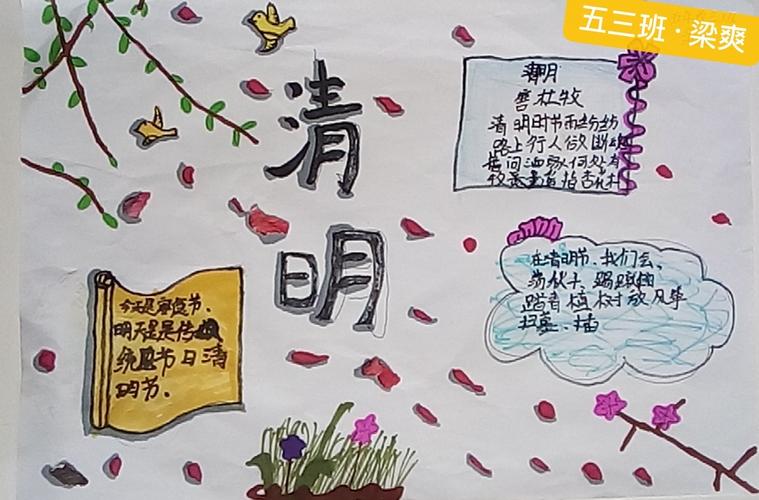 五三班·梁爽
清
明
清明
杜牧
清明时节雨纷纷
路上行人欲断魂
借问酒家何处有
牧童遥指杏花村
在清明节、我们会、
荡秋千、踢蹴鞠
踏青植树放风筝
扫墓、插
今天是寒食节、
明天是是传
统节日清
明节。